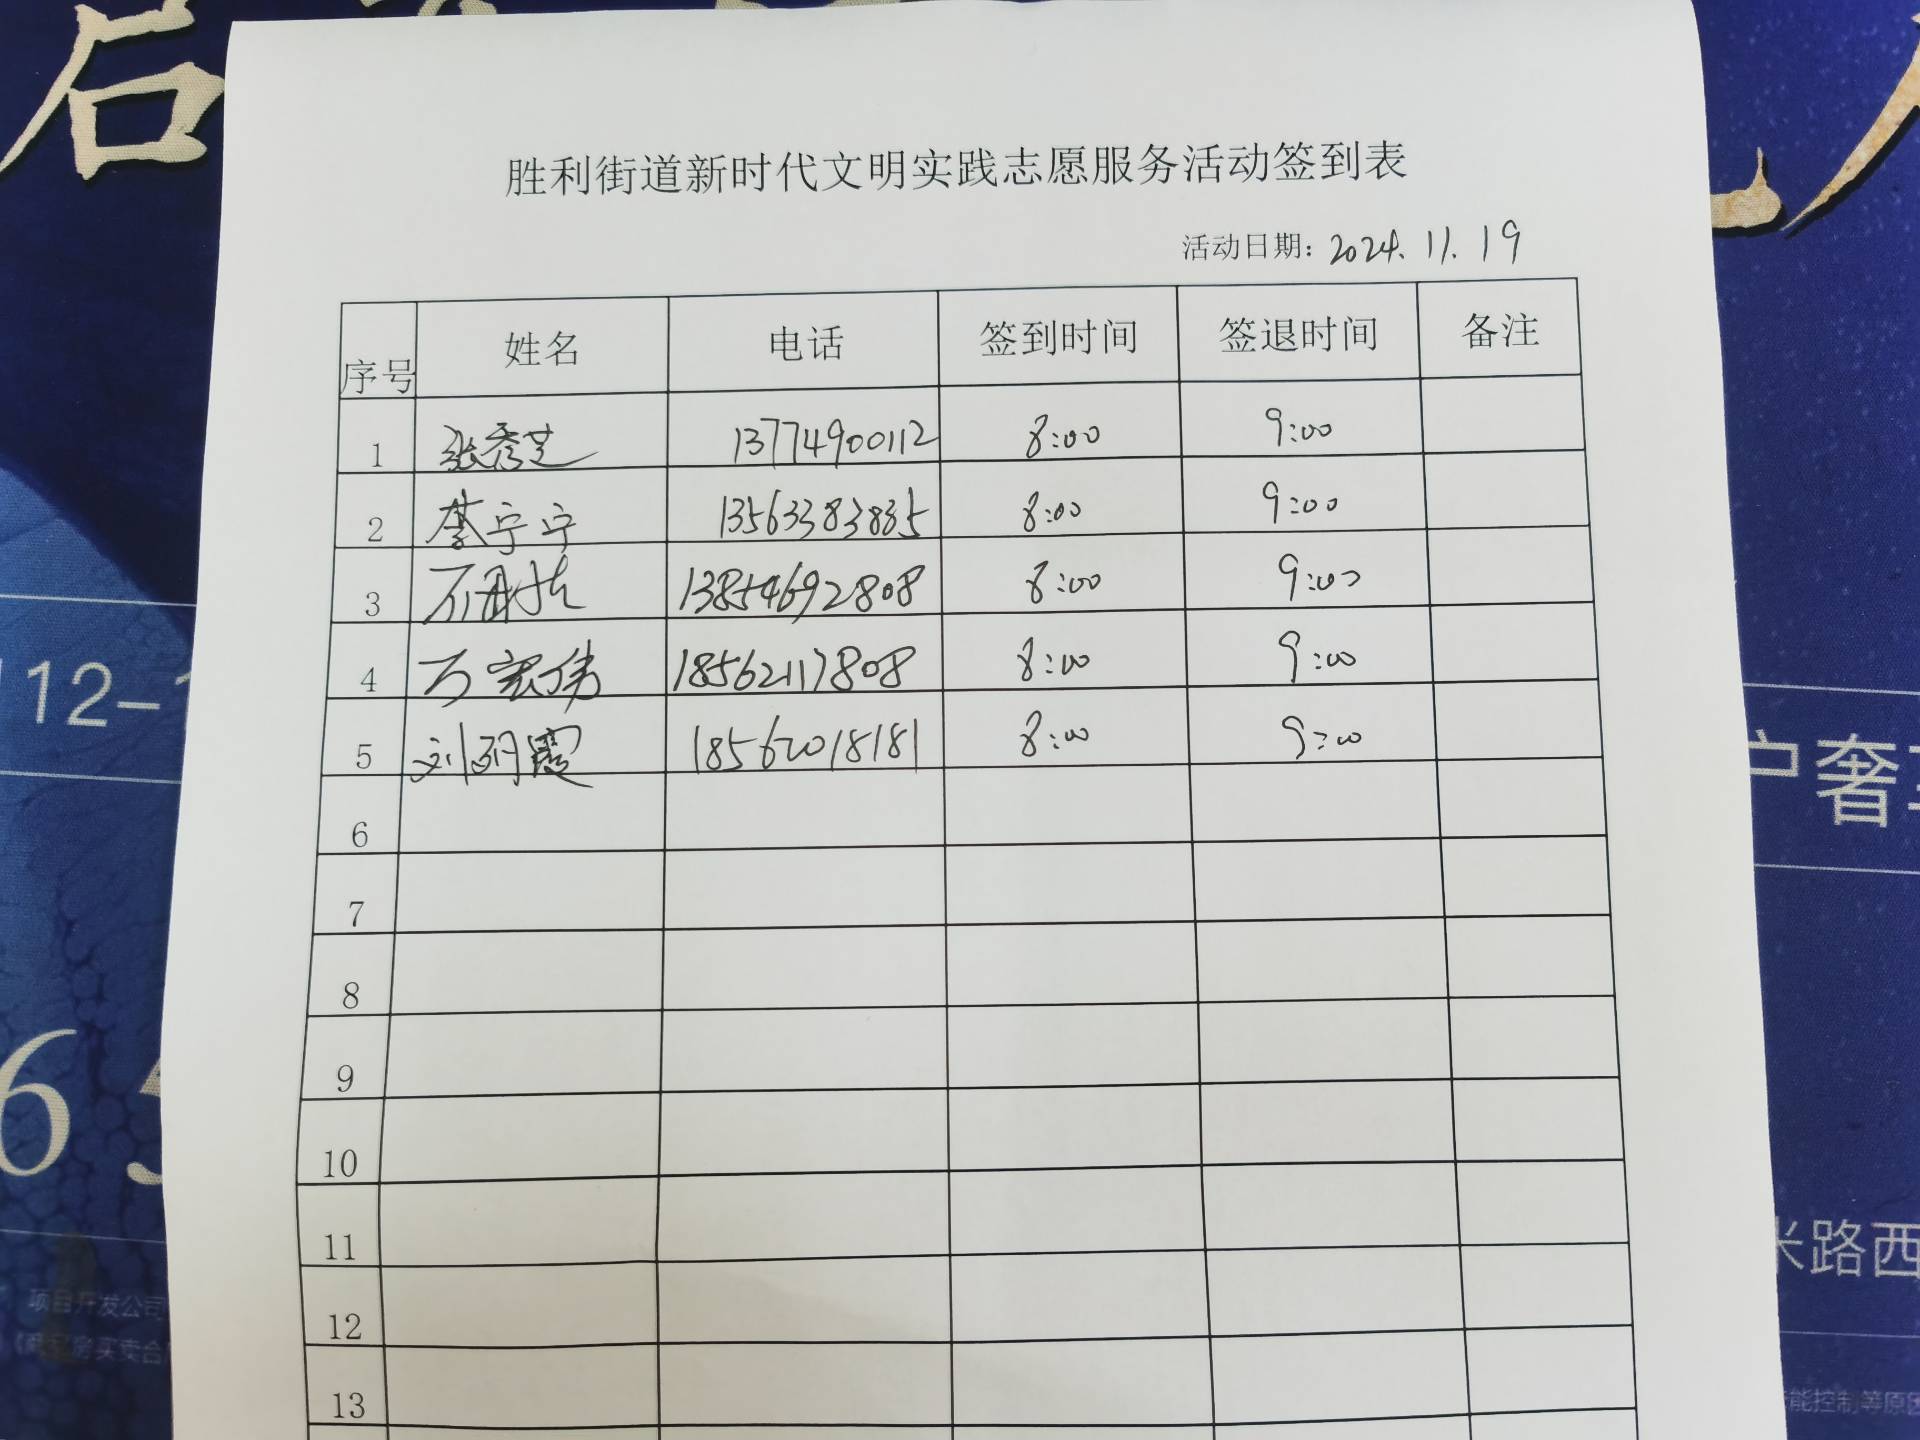 胜利街道新时代文明实践志愿服务活动签到表
活动日期：2024.11.19
序号 姓名 电话 签到时间 签退时间 备注
1 张秀芝 13774900112 8:00 9:00
2 李宁宁 13563383835 8:00 9:00
3 13854692808 8:00 9:00
4 万宏伟 18562117808 8:00 9:00
5 刘丽霞 18562018181 8:00 9:00
6
7
8
9
10
11
12
13
112-1
户奢
6 5
米路西
项目开发公司
房买卖合
能控制等原因